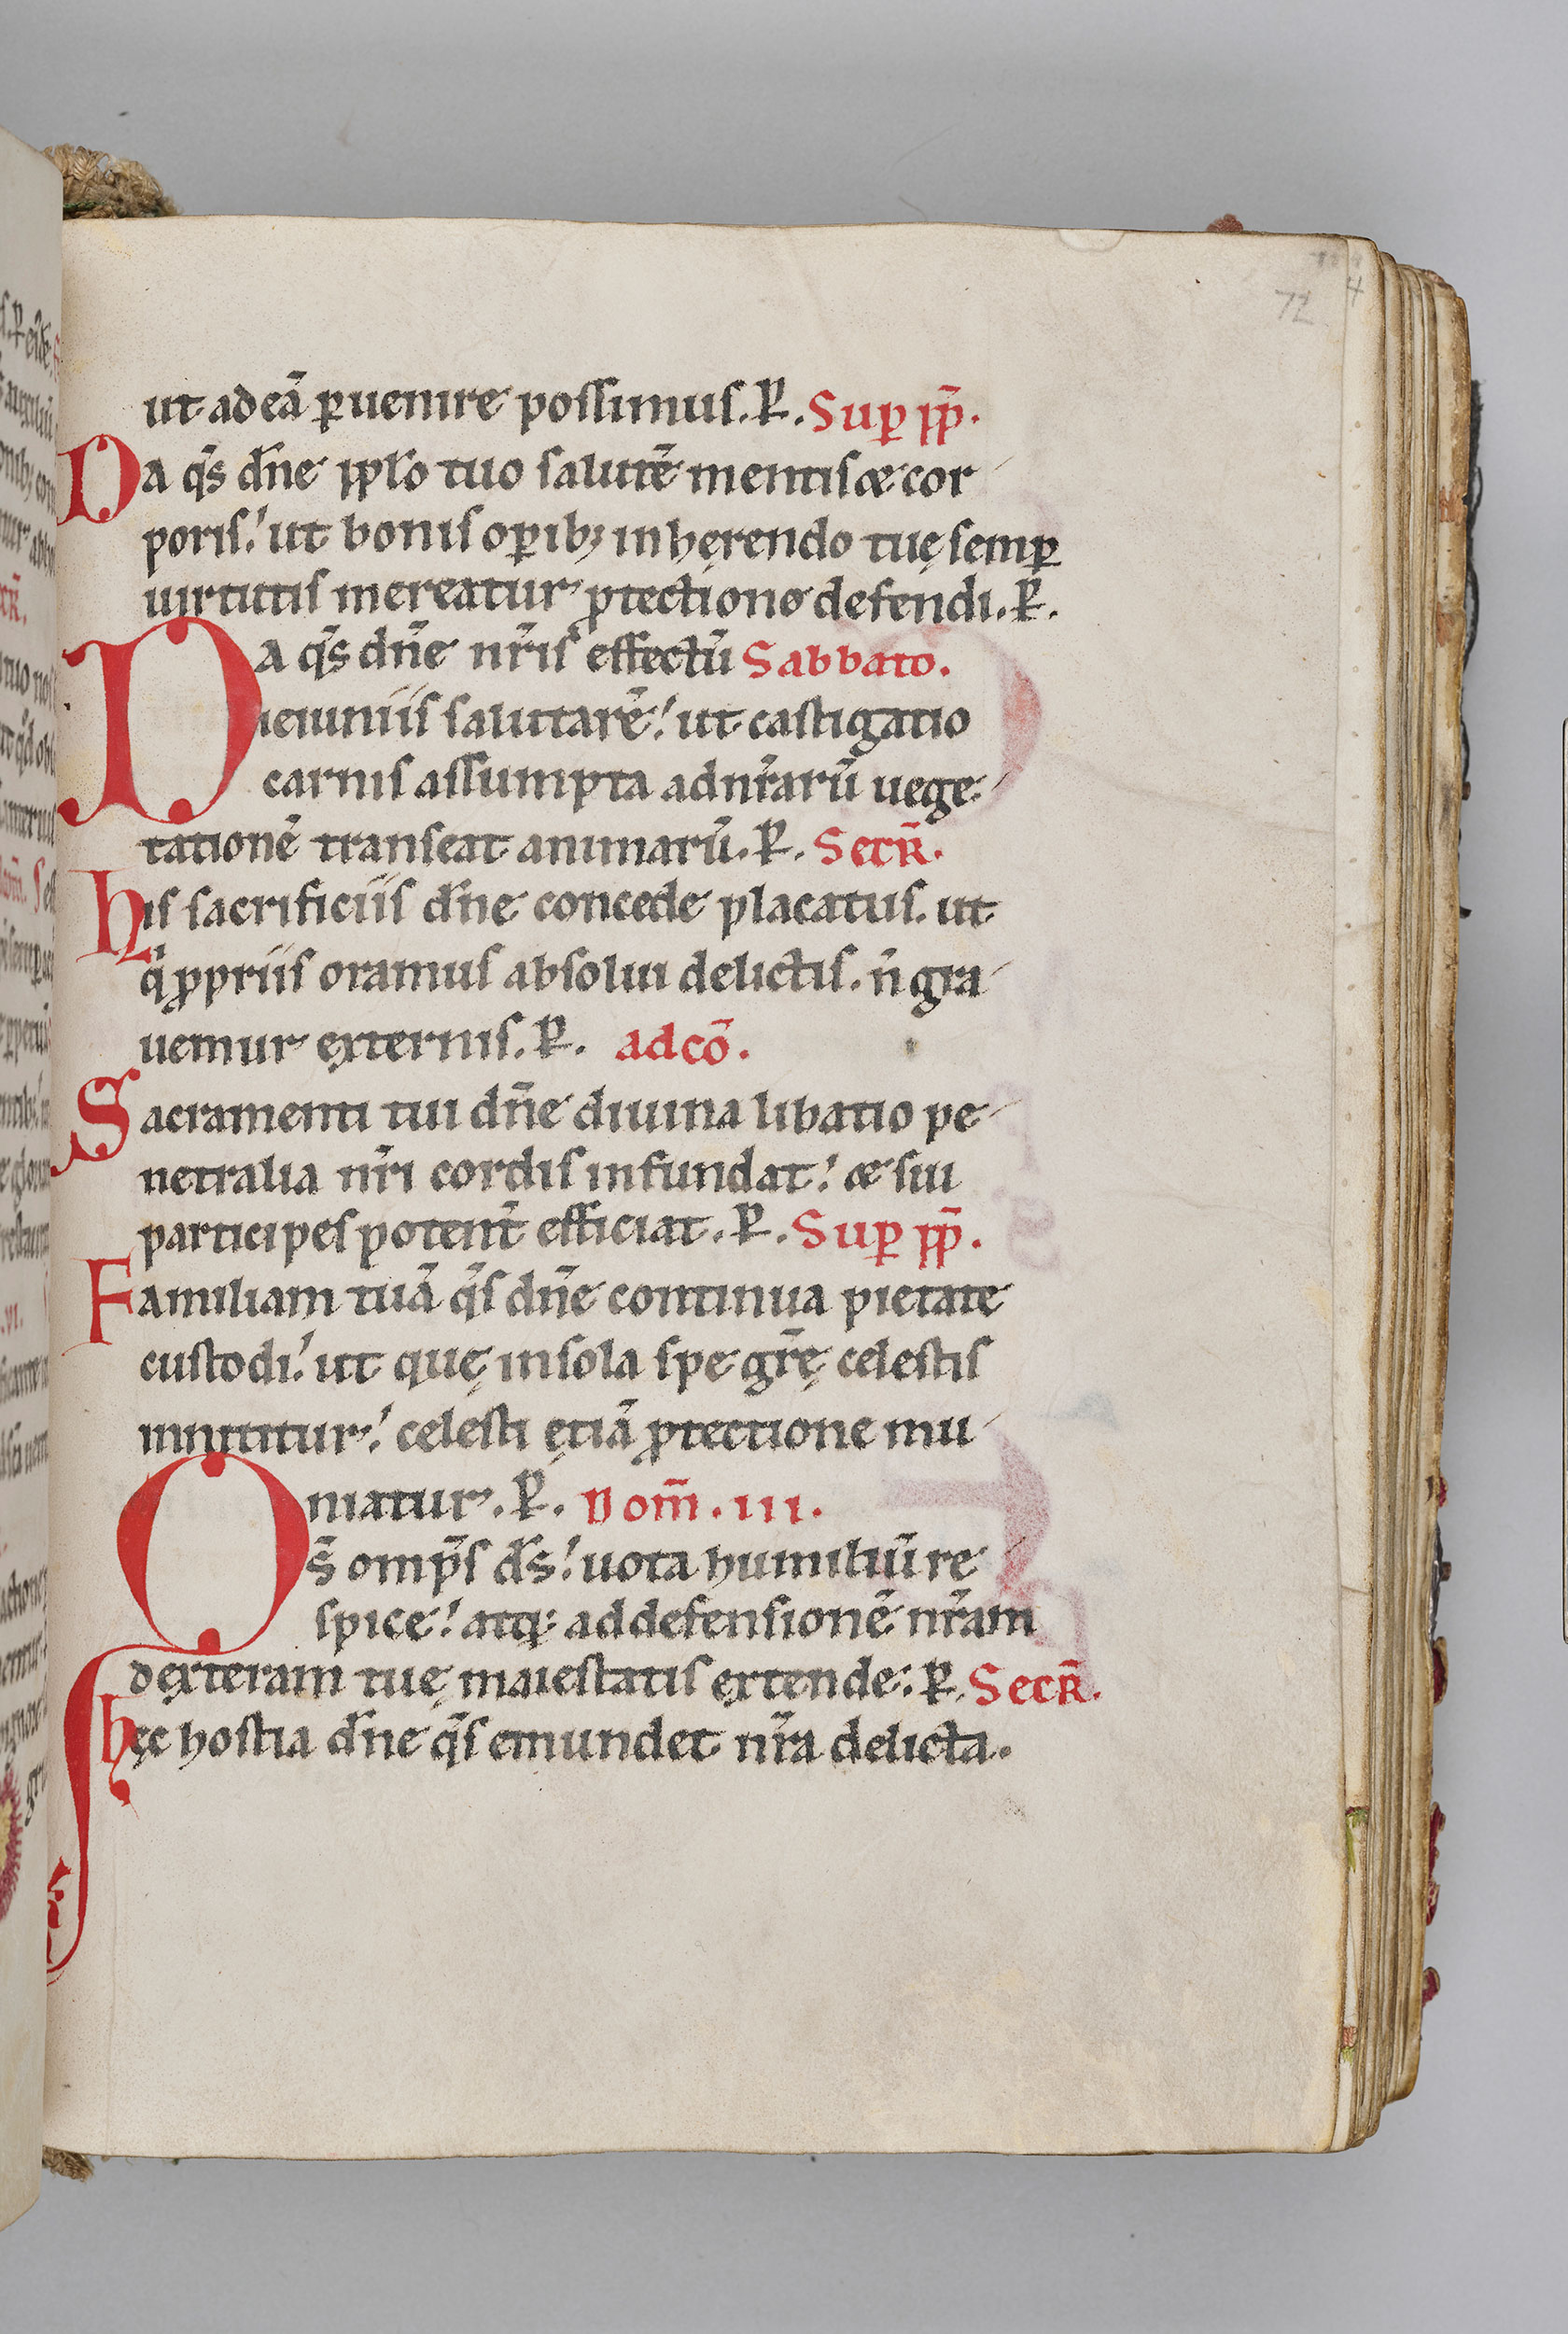 72
ut adeā ꝑuenire possimus. P̱. Sup̱ pp̄.
Da q̄s dn̄e pplo tuo salutē mentis & cor
poris! ut bonis oꝑib; inhęrendo tuę semꝑ
uirtutis mereatur ꝓtectione defendi. P̱.
Da q̄s dn̄e nr̄is effectū Sabbato.
ieiuniis salutarē! ut castigatio
carnis assumpta ad nr̄arū uege
tationē transeat animarū. P̱. Secr̄.
his sacrificiis dn̄e concede placatus. ut
qͥ ꝓpriis oramus absolui delictis. n̄ gra
uemur externis. P̱. ad cō.
Sacramenti tui dn̄e diuina libatio pe
netralia nr̄i cordis infundat! & sui
participes potent̄ efficiat. P̱. Sup̱ pp̄.
Familiam tuā q̄s dn̄e continua pietate
custodi! ut quę in sola spe gr̄ę celestis
innititur! celesti ętiā ꝓtectione mu
niatur. P̱. Dom̄. III.
Os̄ omp̄s ds̄! uota humiliū re
spice! atq; ad defensionē nr̄am
dexteram tuę maiestatis extende. P̱. Secr̄.
hęc hostia dn̄e q̄s emundet nr̄a delicta.